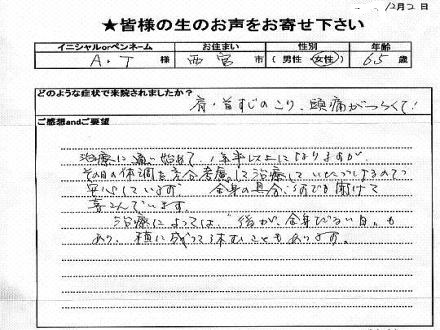 12月2日
★皆様の生のお声をお寄せ下さい
イニシャルorペンネーム お住まい 性別 年齢
A・T 様 西宮 市 (男性・女性) 65 歳
どのような症状で来院されましたか？
肩・首すじのこり、頭痛がつらくて！
ご感想andご要望
治療に通い始めて、1年半以上になりますが、
その日の体調を充分考慮して治療していただいてるので
安心しています 全身の具合 聞けて
喜んでいます。
治療によっては、後が、全身 日 も
あり、横に 休むこともあります。